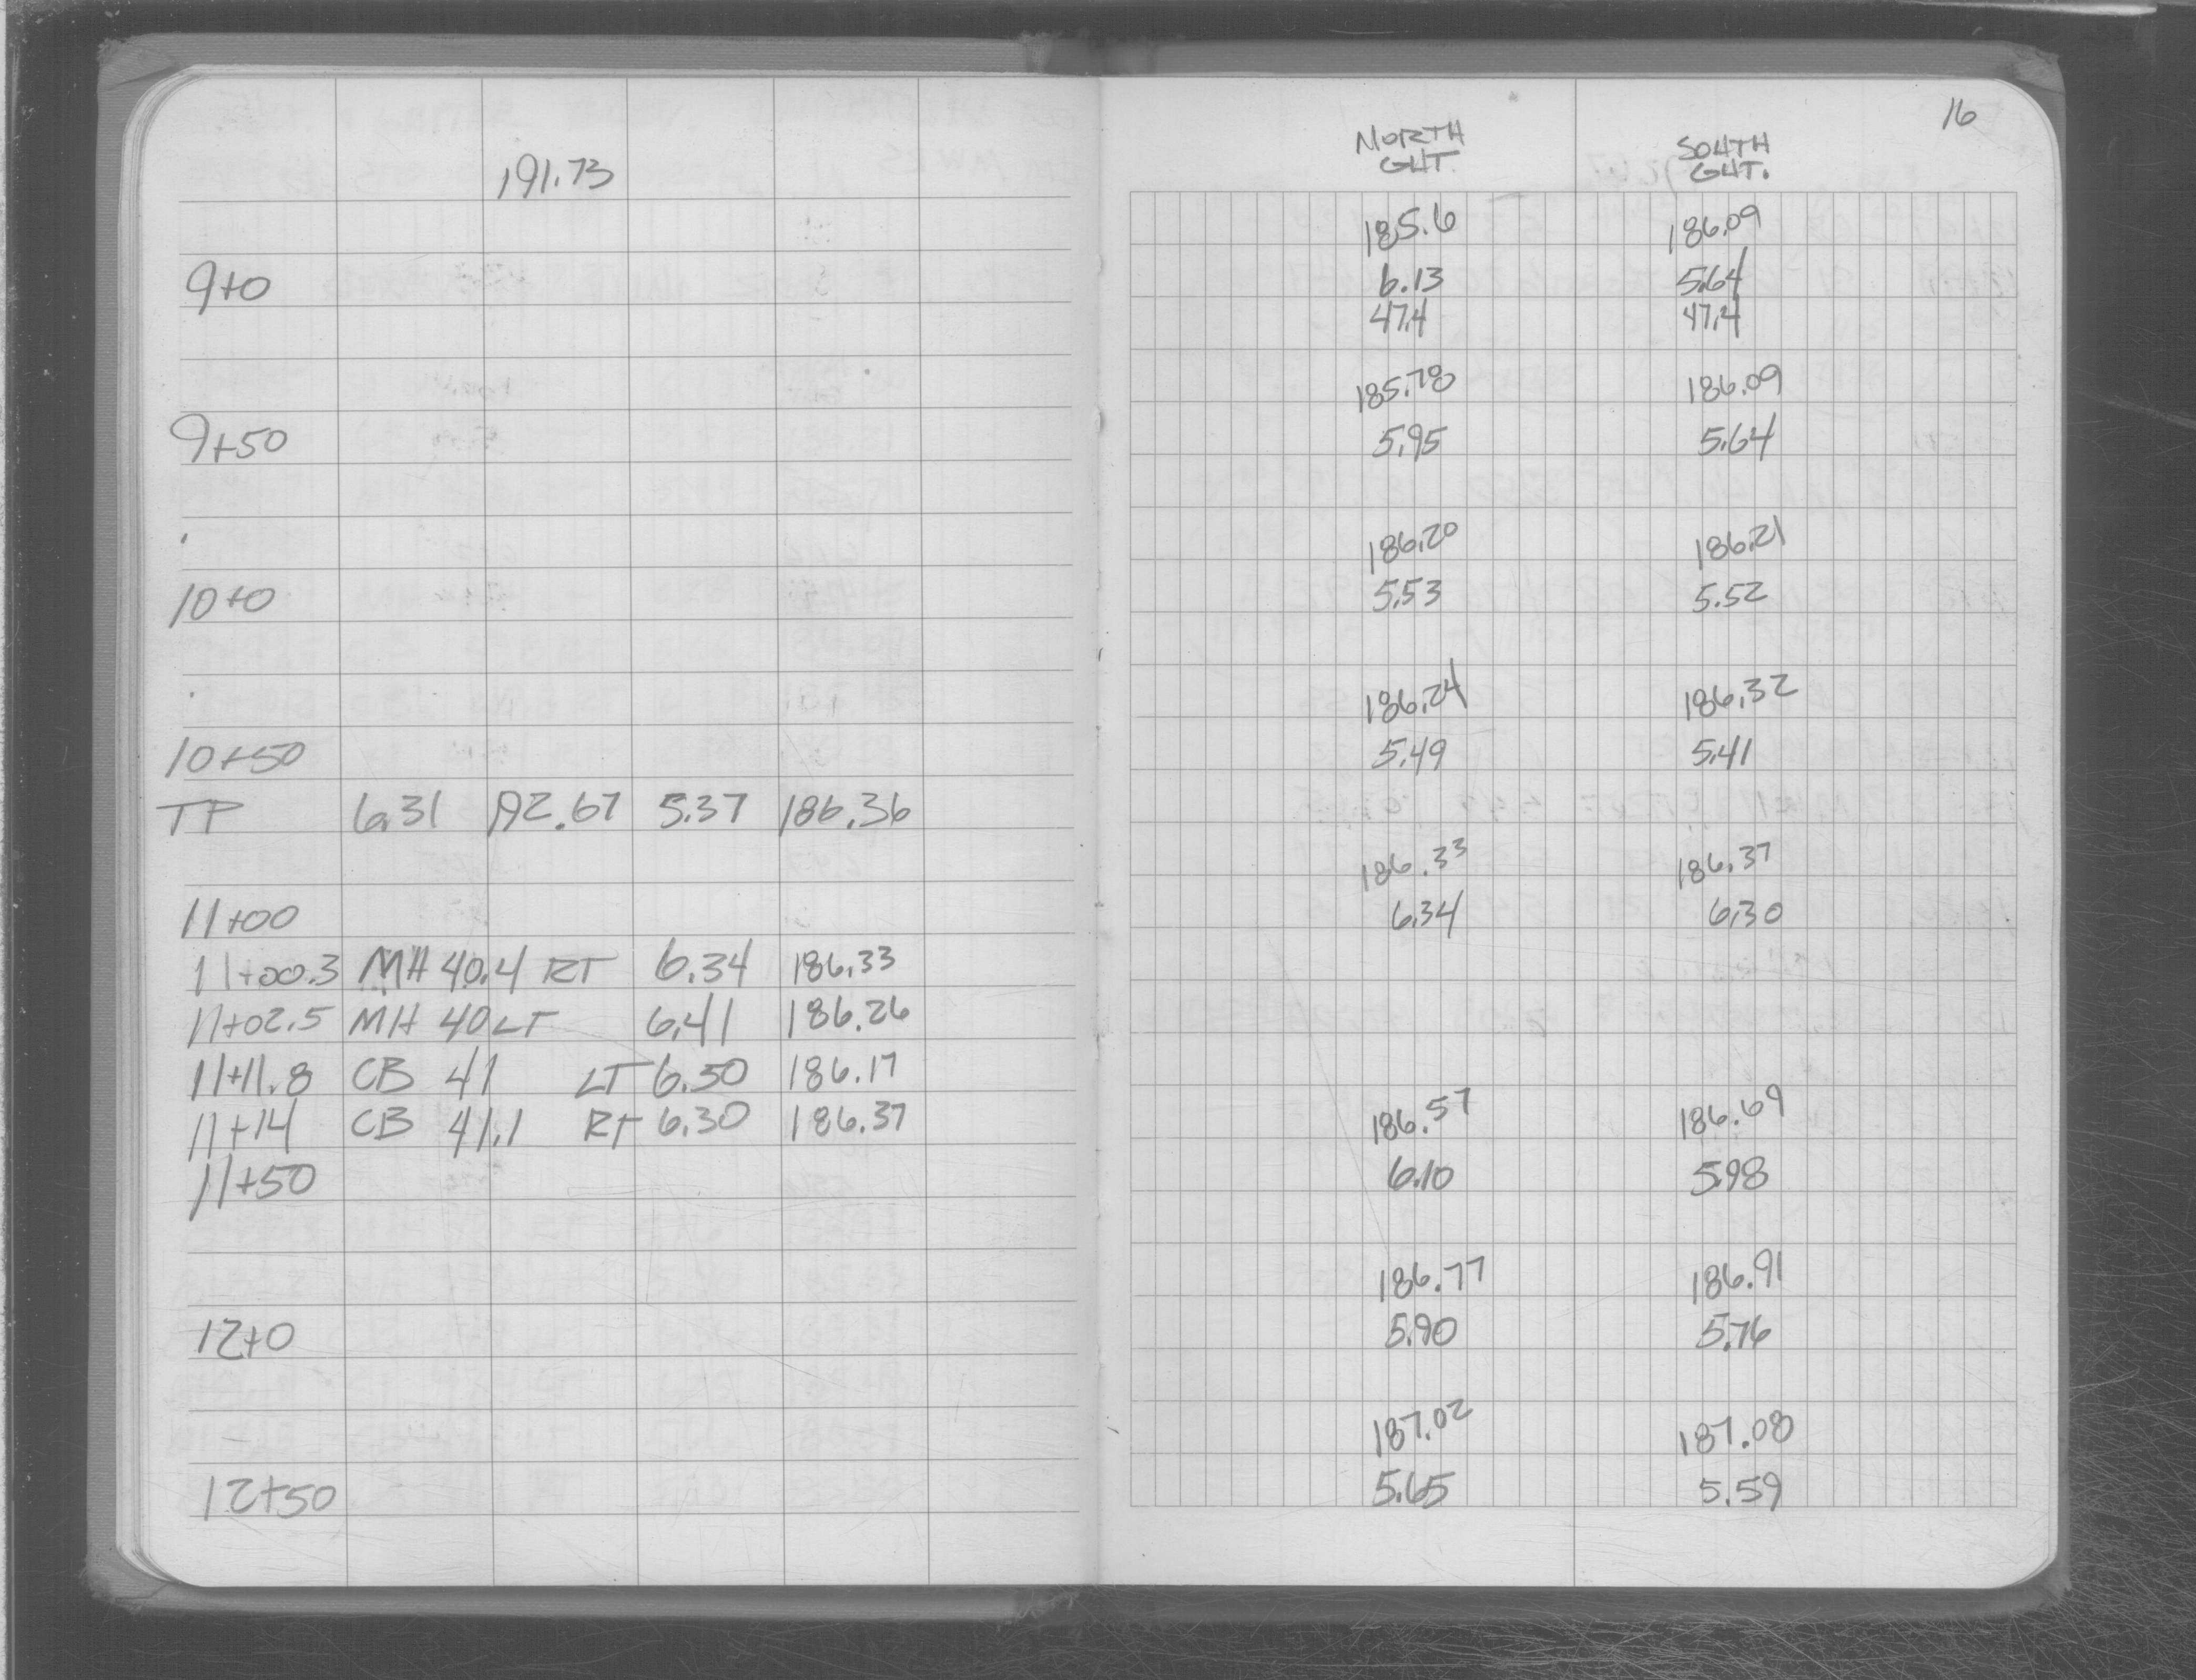 16
NORTH SOUTH
GUT. GUT.
191.73
185.6 186.09
9+0 6.13 5.64
47.4 47.4
185.78 186.09
9+50 5.95 5.64
186.20 186.21
10+0 5.53 5.52
186.24 186.32
10+50 5.49 5.41
TP 6.31 192.67 5.37 186.36
186.33 186.37
11+00 6.34 6.30
11+00.3 MH 40.4 RT 6.34 186.33
11+02.5 MH 40 LT 6.41 186.26
11+11.8 CB 41 LT 6.50 186.17
11+14 CB 41.1 RT 6.30 186.37 186.57 186.69
11+50 6.10 5.98
186.77 186.91
12+0 5.90 5.76
187.02 187.08
12+50 5.65 5.59